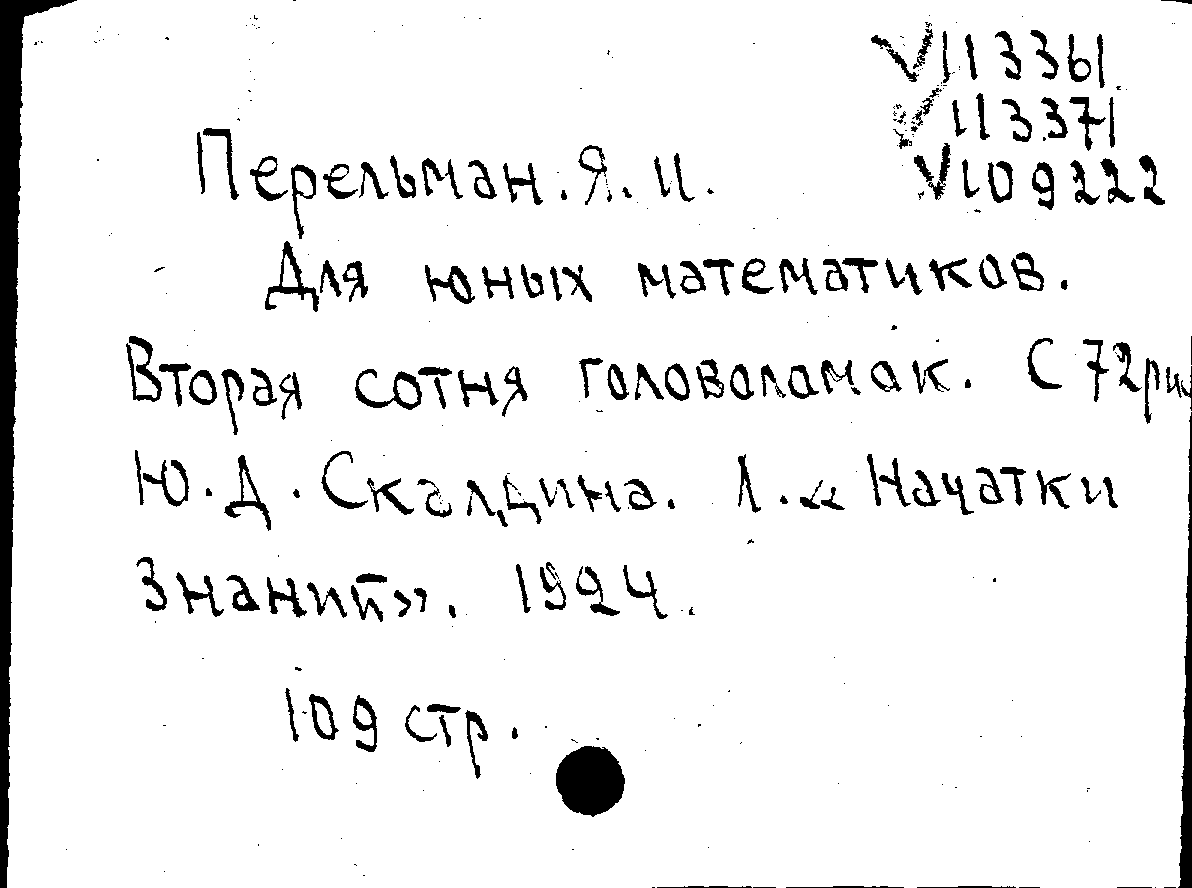 V113361
V113371
V109222
Перельман. Я. И.
Для юных математиков.
Вторая сотня головоломок. С 72 рис
Ю. Д. Скалдина. Л. «Начатки
Знаний». 1924.
109 стр.